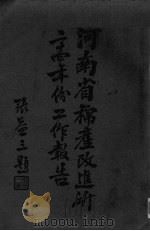 河南省棉產改進所
二十五年份工作報告
張益三題